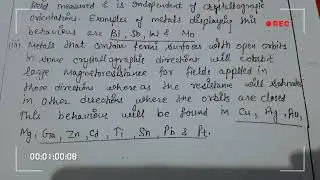 field measured & is independent of crystallographic
orientations. Examples of metals displaying this
behaviours are Bi, Sb, W & Mo
(iii) Metals that contain fermi surfaces with open orbits
in some crystallographic directions will exhibit
large magnetoresistance for fields applied in
those directions whereas the resistance will saturate
in other directions where the orbits are closed
This behaviours will be found in Cu, Ag, Au,
Mg, Ga, Zn, Cd, Ti, Sn, Pb & Pt.
REC
00:01:00:08